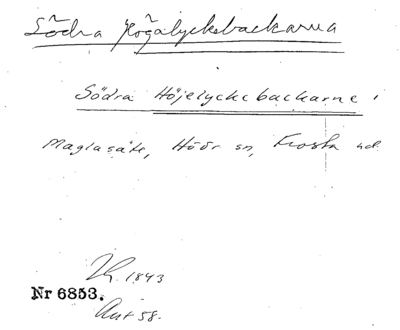 Södra Högalycksbackarna
Södra Höjelyckebackarne i
Maglasäte, Höör sn, Frosta hd
1843
Nr 6853.
Akt 58.